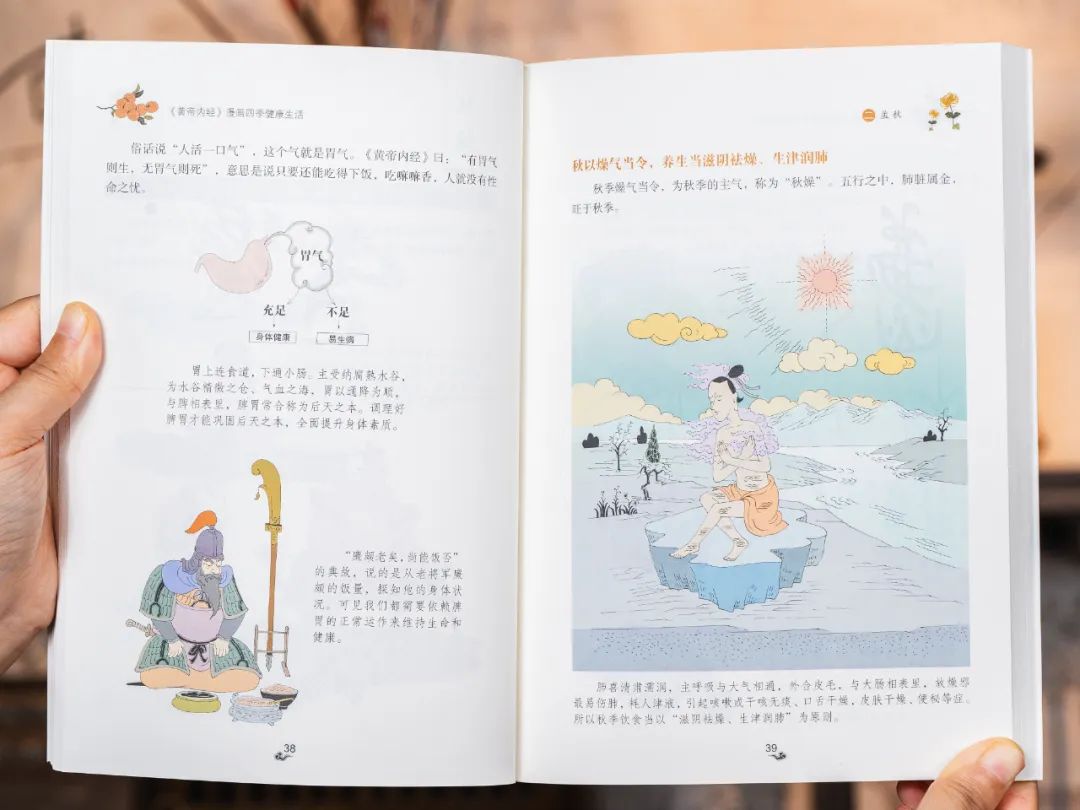 《黄帝内经》漫画四季健康生活
俗话说“人活一口气”，这个气就是胃气。《黄帝内经》曰：“有胃气
则生，无胃气则死”，意思是说只要还能吃得下饭，吃嘛嘛香，人就没有性
命之忧。
胃气
充足
不足
身体健康
易生病
胃上连食道，下通小肠。主受纳腐熟水谷，
为水谷精微之仓、气血之海，胃以通降为顺，
与脾相表里，脾胃常合称为后天之本。调理好
脾胃才能巩固后天之本，全面提升身体素质。
“廉颇老矣，尚能饭否”
的典故，说的是从老将军廉
颇的饭量，探知他的身体状
况。可见我们都需要依赖脾
胃的正常运作来维持生命和
健康。
38
二 孟秋
秋以燥气当令，养生当滋阴祛燥、生津润肺
秋季燥气当令，为秋季的主气，称为“秋燥”。五行之中，肺脏属金，
旺于秋季。
肺喜清肃濡润，主呼吸与大气相通，外合皮毛，与大肠相表里，故燥邪
最易伤肺，耗人津液，引起咳嗽或干咳无痰、口舌干燥，皮肤干燥、便秘等症。
所以秋季饮食当以“滋阴祛燥、生津润肺”为原则。
39